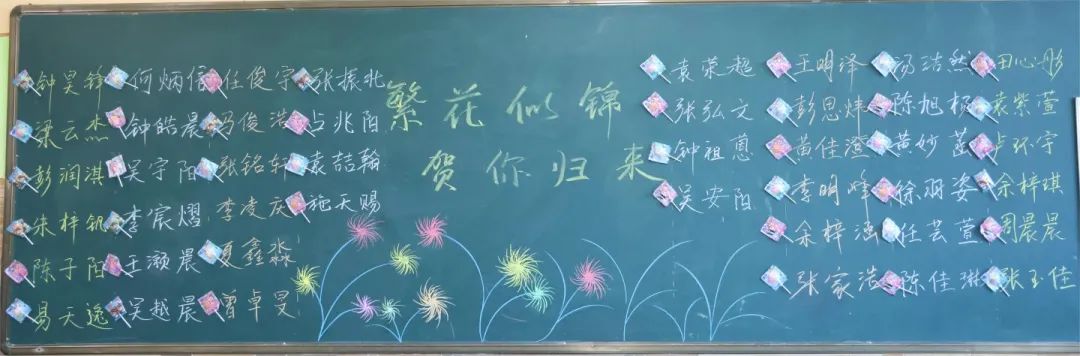 钟昊锋 何炳信 任俊宇 张振兆
梁云杰 钟皓晨 冯俊浩 占兆阳
彭润淇 吴宇阳 张铭轩 袁喆翰
朱梓钒 李宸熠 李凌庆 施天赐
陈子阳 王灏晨 夏鑫淼
易天逸 吴越晨 曾卓旻
繁花似锦
贺你归来
袁荣超 王明泽 汤洁然 田心彤
张弘文 彭思炜 陈旭杨 袁紫萱
钟祖蒽 黄佳澄 黄妙菡 卢怀宇
吴安阳 李明峰 徐羽姿 余梓琪
余梓涵 任芸萱 周晨晨
张家浩 陈佳琳 张玉佳